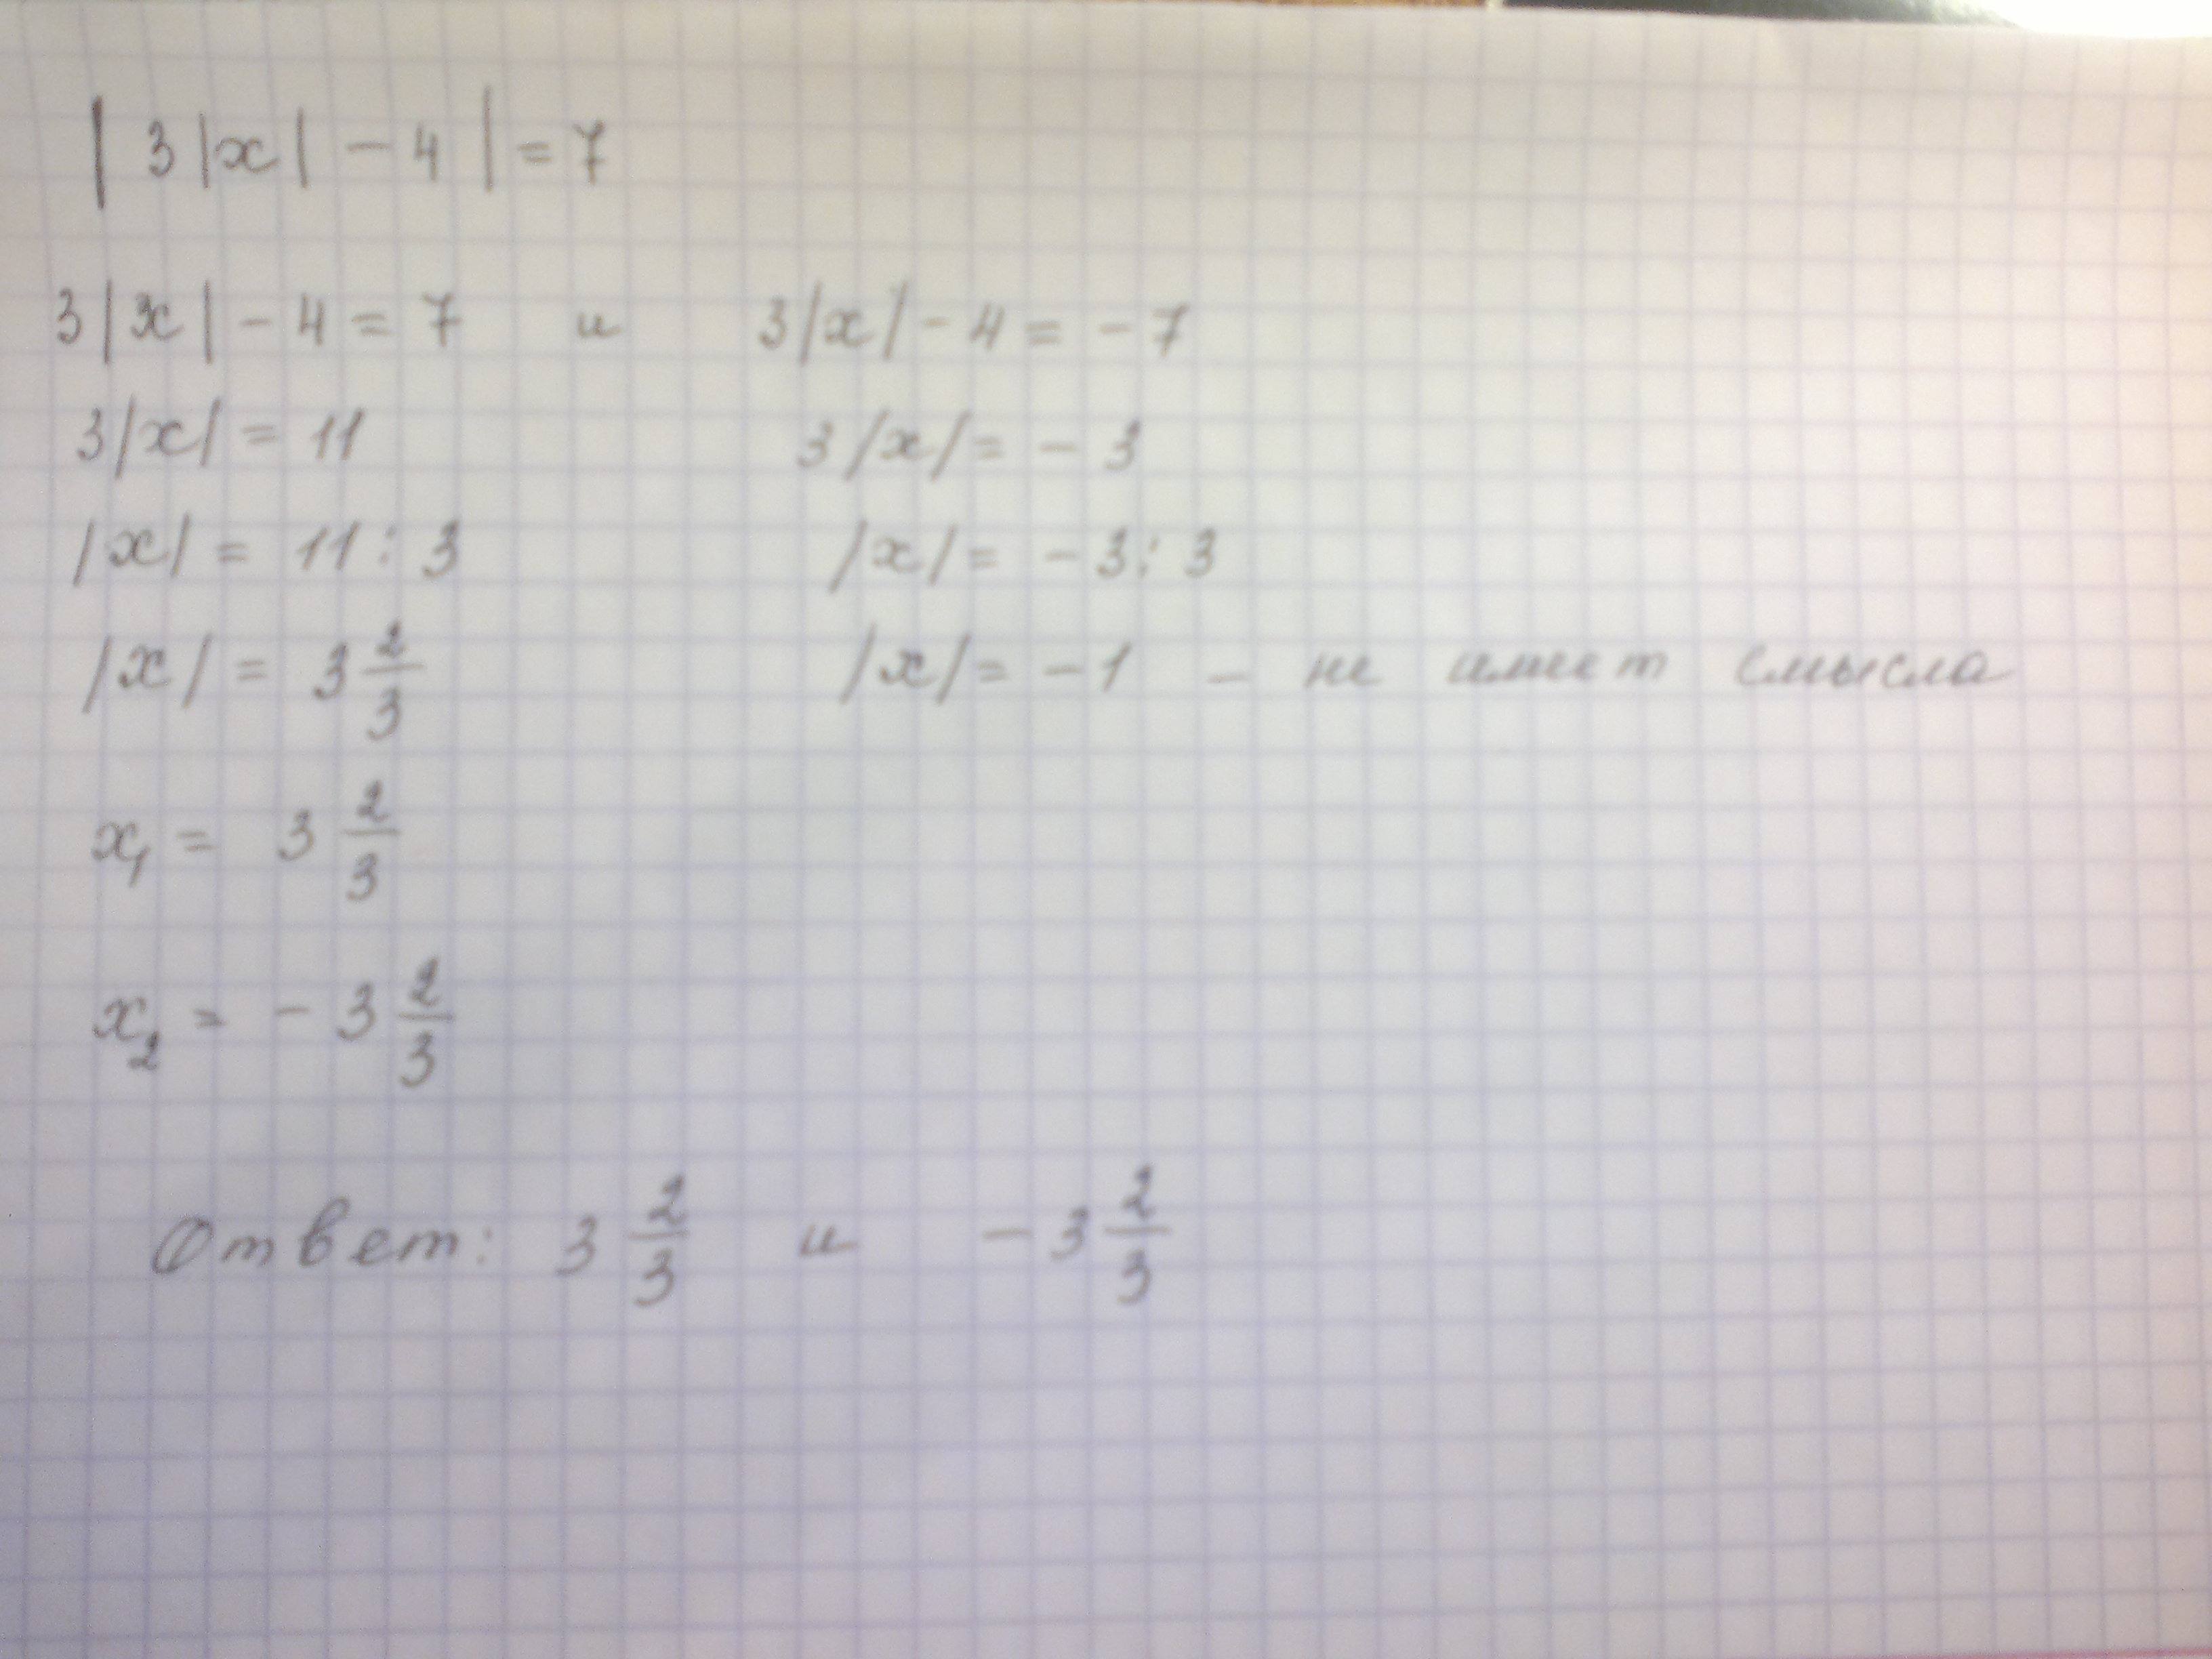 | 3 |x| - 4 | = 7
3 |3x| - 4 = 7 и 3 |x| - 4 = - 7
3 |x| = 11 3 |x| = - 3
|x| = 11 : 3 |x| = - 3 : 3
|x| = 3 2/3 |x| = - 1 - не имеет смысла
x₁ = 3 2/3
x₂ = - 3 2/3
Ответ: 3 2/3 и - 3 2/3